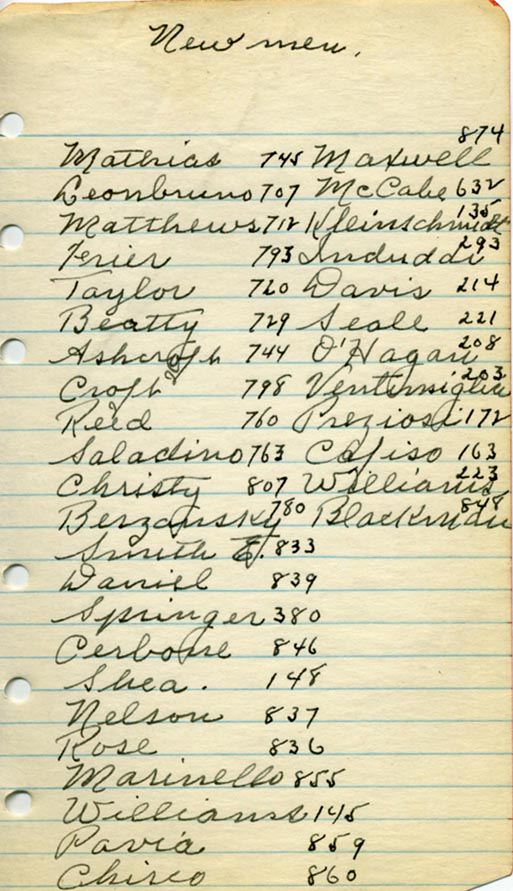 New men.
Mathias 745 Maxwell 874
Leonbruno 707 McCabe 632
Matthews 712 Kleinschmidt 135
Ferier 793 Induddi 293
Taylor 720 Davis 214
Beatty 729 Seale 221
Ashcroft 744 O'Hagan 208
Croft 798 Ventimiglia 203
Reed 760 Preziosi 172
Saladino 763 Cafiso 163
Christy 807 Williams 223
Berzansky 780 Blackman 848
Smith E. 833
Daniel 839
Springer 380
Cerbone 846
Shea. 148
Nelson 837
Rose 836
Marinello 855
Williams 145
Pavia 859
Chirco 860